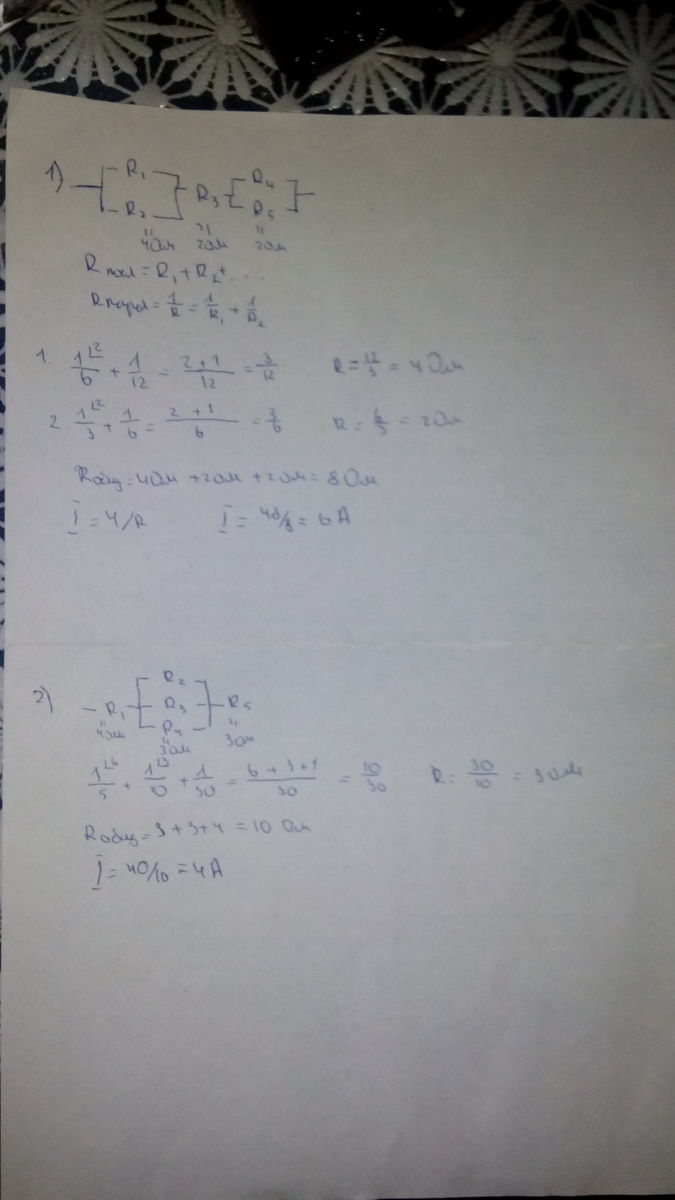 1) R₁ R₃ R₄
R₂ R₅
4Ом 2Ом 2Ом
Rпосл = R₁ + R₂ + ...
Rпарал = 1/R = 1/R₁ + 1/R₂
1. 1^(2)/6 + 1/12 = (2+1)/12 = 3/12 R = 12/3 = 4Ом
2 1^(2)/3 + 1/6 = (2+1)/6 = 3/6 R = 6/3 = 2Ом
Rобщ = 4Ом + 2Ом + 2Ом = 8Ом
I = U/R I = 48/8 = 6А
2) R₂
R₁ R₃ R₅
R₄
4Ом 3Ом 3Ом
1^(6)/5 + 1^(3)/10 + 1/30 = (6+3+1)/30 = 10/30 R = 30/10 = 3Ом
Rобщ = 3+3+4 = 10 Ом
I = 40/10 = 4А